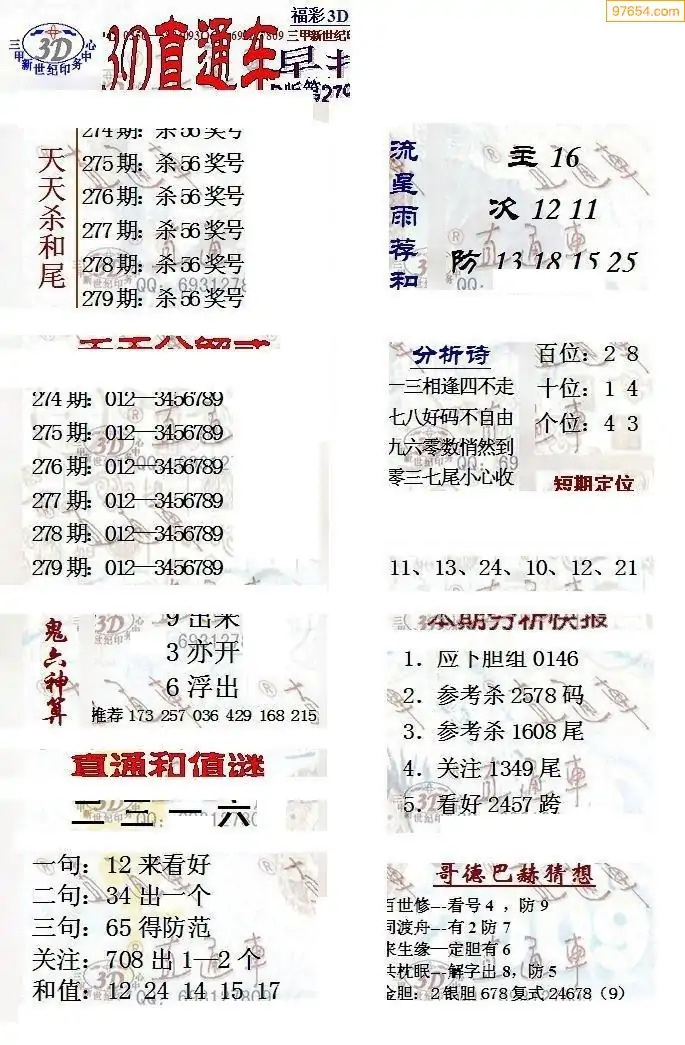 97654.com
福彩3D
三甲新世纪印务中心
3D
3D直通车
早
天天杀和尾
274期：杀56奖号
275期：杀56奖号
276期：杀56奖号
277期：杀56奖号
278期：杀56奖号
279期：杀56奖号
流星雨荐和
主 16
次 12 11
防 13 18 15 25
274期：012—3456789
275期：012—3456789
276期：012—3456789
277期：012—3456789
278期：012—3456789
279期：012—3456789
分析诗
一三相逢四不走
七八好码不自由
九六零数悄然到
零三七尾小心收
百位：2 8
十位：1 4
个位：4 3
短期定位
11、13、24、10、12、21
鬼六神算
9 出来
3 亦开
6 浮出
推荐 173 257 036 429 168 215
本期分析快报
1．应下胆组 0146
2．参考杀 2578 码
3．参考杀 1608 尾
4．关注 1349 尾
5．看好 2457 跨
直通和值谜
二三一六
一句：12 来看好
二句：34 出一个
三句：65 得防范
关注：708 出 1—2 个
和值：12 24 14 15 17
哥德巴赫猜想
百世修---看号 4 ，防 9
同渡舟---有 2 防 7
来生缘—定胆有 6
共枕眠---解字出 8，防 5
金胆：2 银胆 678 复式 24678（9）